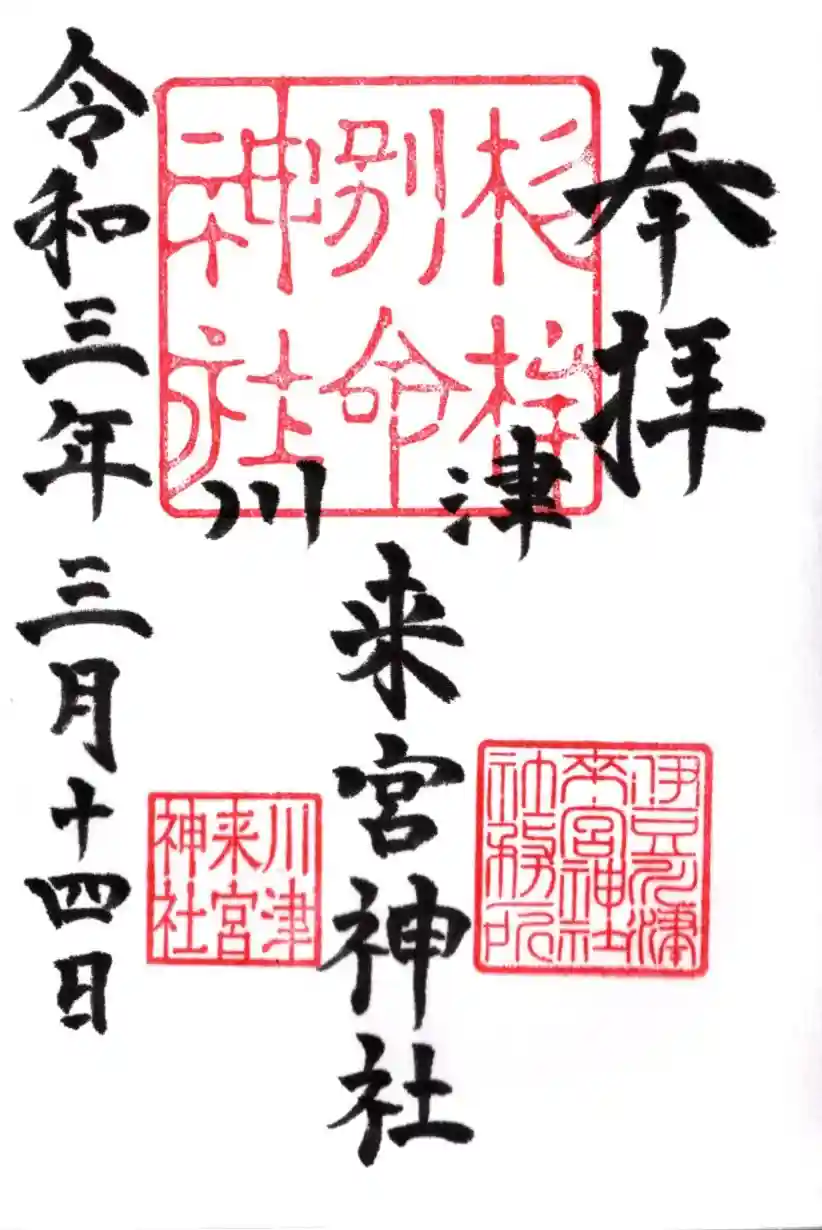 奉拝
杉桙
別命
神社
川津
来宮神社
伊豆川津
来宮神社
社務所
川津
来宮
神社
令和三年三月十四日